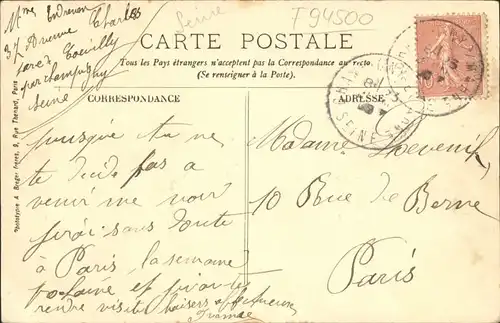 Mme
37 Avenue Charles
par champigny
Seine
Seine
F94500
CARTE POSTALE
Tous les Pays étrangers n'acceptent pas la Correspondance au recto.
(Se renseigner à la Poste).
CORRESPONDANCE
ADRESSE
Phototypie A. Breger Frères, 9, Rue Thénard, Paris
puisque tu ne
te décide pas a
venir me voir
j'irai sans doute
à Paris, la semaine
et j'irai te
rendre visite baisers affectueux
Madame
10 Rue de Berne
Paris
SEINE